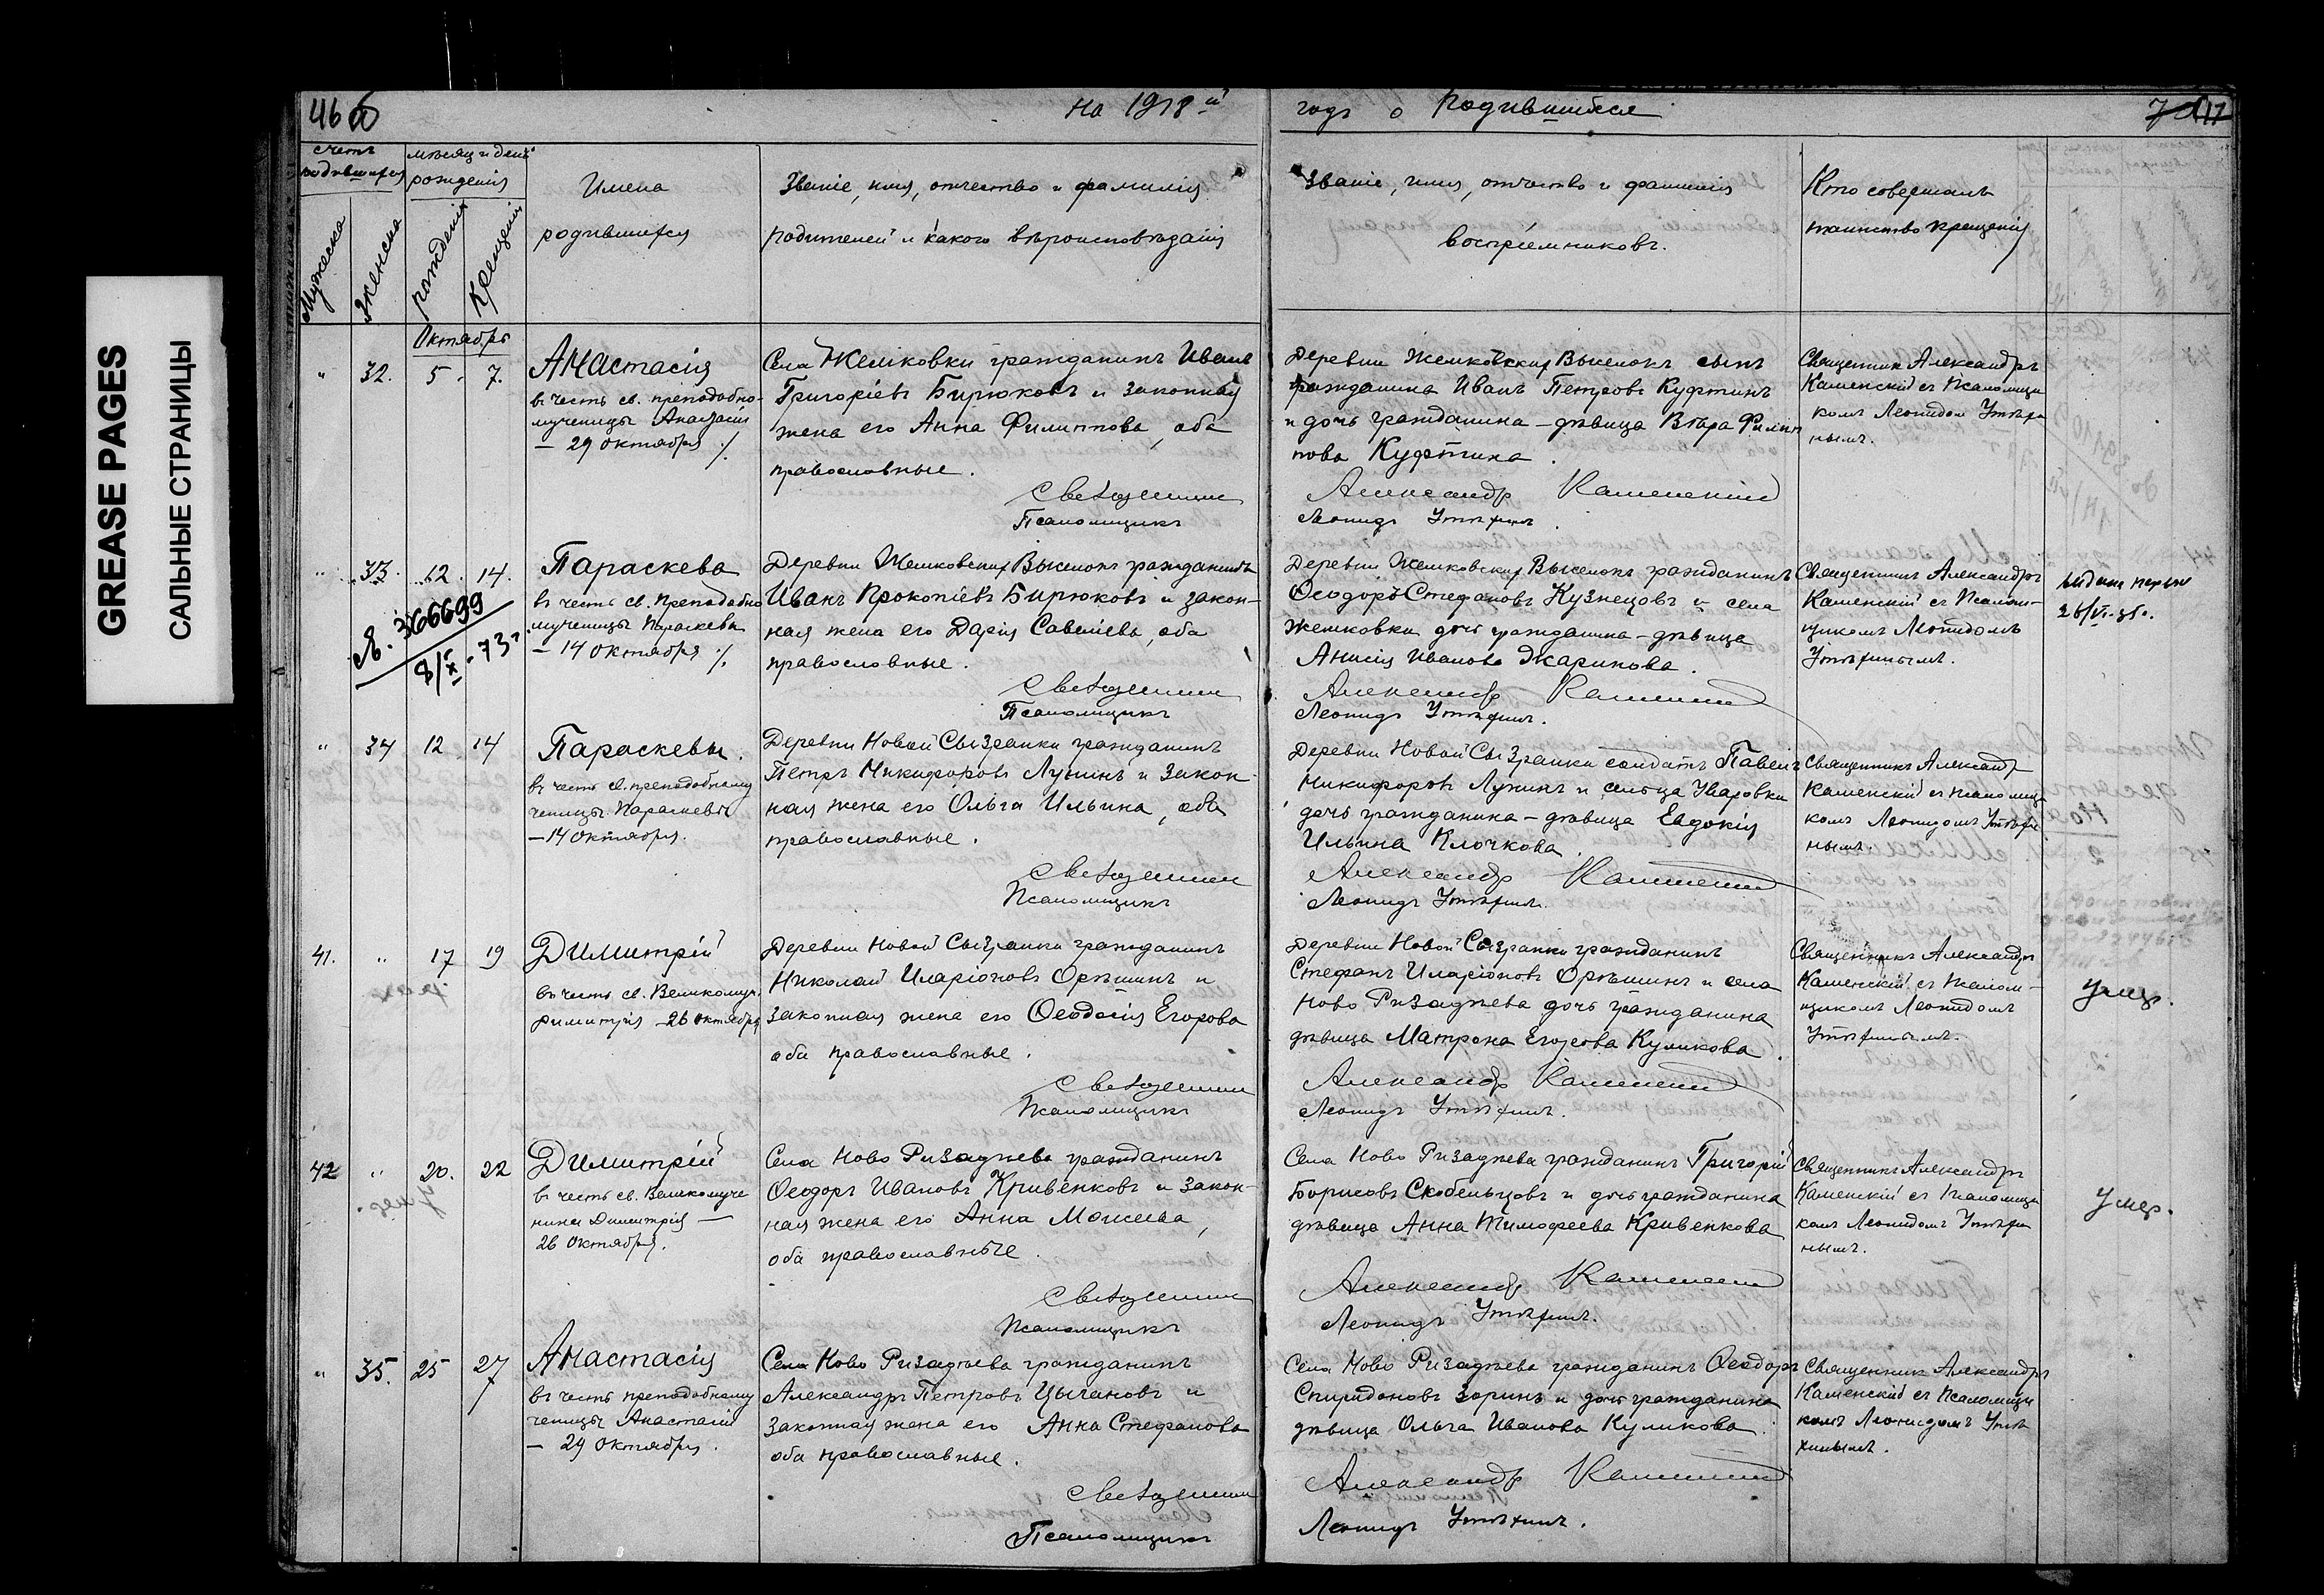 GREASE PAGES
САЛЬНЫЕ СТРАНИЦЫ
46 об
на 1918-й
годъ о родившихся
счетъ родившихся
мѣсяц и день рожденія
Мужеска
Женска
рожденія
Крещенія
Имена
родившихся
Званіе, имя, отчество и фамилія
родителей и какого вѣроисповѣданія
Званіе, имя, отчество и фамилія
воспріемниковъ.
Кто совершалъ
таинство крещенія
Октябрь
" 32. 5. 7.
Анастасія
въ честь св. преподобно-
мученицы Анастасіи
— 29 октября
Села Жемковки гражданинъ Иванъ
Григоріевъ Бирюковъ и законная
жена его Анна Филиппова, оба
православные.
Священникъ
Псаломщикъ
Деревни Жемковских Выселокъ сынъ
гражданина Иванъ Петровъ Куфтинъ
и дочь гражданина – дѣвица Вѣра Филип
пова Куфтина.
Александръ Каменскій
Леонидъ Утѣхинъ.
Священник Александръ
Каменскій съ Псаломщи
комъ Леонидом Утѣхи
нымъ.
" 33. 12. 14.
№. 366699
8/X-73г.
Параскева
въ честь св. Преподобно
мученицы Параскевы
— 14 октября
Деревни Жемковских Выселокъ гражданинъ
Иванъ Прокопіевъ Бирюковъ и закон-
ная жена его Дарія Савеліева, оба
православные.
Священникъ
Псаломщикъ
Деревни Жемковских Выселокъ гражданинъ
Ѳеодоръ Стефановъ Кузнецовъ и села
Жемковки дочь гражданина – дѣвица
Анисія Иванова Жарикова.
Александръ Каменскій
Леонидъ Утѣхинъ.
Священникъ Александръ
Каменскій съ Псалом-
щикомъ Леонидомъ
Утѣхинымъ.
" 34 12 14
Параскевы.
въ честь св. преподобному
ченицы Параскевы
— 14 октября.
Деревни Новой Сызранки гражданинъ
Петръ Никифоровъ Лунинъ и закон-
ная жена его Ольга Ильина, оба
православные.
Священникъ
Псаломщикъ
Деревни Новой Сызранки солдатъ Павелъ
Никифоровъ Лунинъ и сельца Уваровки
дочь гражданина – дѣвица Евдокія
Ильина Клочкова.
Александръ Каменскій
Леонидъ Утѣхинъ.
Священникъ Александр
Каменскій съ псаломщи
комъ Леонидомъ Утѣхи
нымъ.
41. " 17 19
Димитрій
въ честь св. Великомуч.
Димитрія – 26 октября
Деревни Новой Сызранки гражданинъ
Николай Иларіоновъ Орѣшинъ и
законная жена его Ѳеодосія Егорова
оба православные.
Священникъ
Псаломщикъ
Деревни Новой Сызранки гражданинъ
Стефанъ Иларіоновъ Орѣшинъ и села
Ново Ризадѣева дочь гражданина
дѣвица Матрона Егорова Куликова.
Александръ Каменскій
Леонидъ Утѣхинъ.
Священникъ Александръ
Каменскій съ Псалом-
щикомъ Леонидомъ
Утѣхинымъ.
умер.
42 " 20. 22
Димитрій
въ честь св. Великомуче
ника Димитрія —
26 Октября.
Села Ново Ризадѣева гражданинъ
Ѳеодоръ Ивановъ Кривенковъ и закон-
ная жена его Анна Моисеева,
оба православные.
Священникъ
Псаломщикъ
Села Ново Ризадѣева гражданинъ Григорій
Борисовъ Скобельцовъ и дочь гражданина
дѣвица Анна Тимофеева Кривенкова
Александръ Каменскій
Леонидъ Утѣхинъ.
Священникъ Александръ
Каменскій съ Псаломщи
комъ Леонидомъ Утѣхи
нымъ.
умер.
" 35. 25 27
Анастасія
въ честь преподобному
ченицы Анастасіи
— 29 октября.
Села Ново Ризадѣева гражданинъ
Александръ Петровъ Цыгановъ и
законная жена его Анна Стефанова
оба православные.
Священникъ
Псаломщикъ
Села Ново Ризадѣева гражданинъ Ѳеодоръ
Спиридоновъ Зоринъ и дочь гражданина
дѣвица Ольга Иванова Куликова.
Александръ Каменскій
Леонидъ Утѣхинъ.
Священник Александръ
Каменскій съ Псаломщи
комъ Леонидомъ Утѣ
хинымъ.